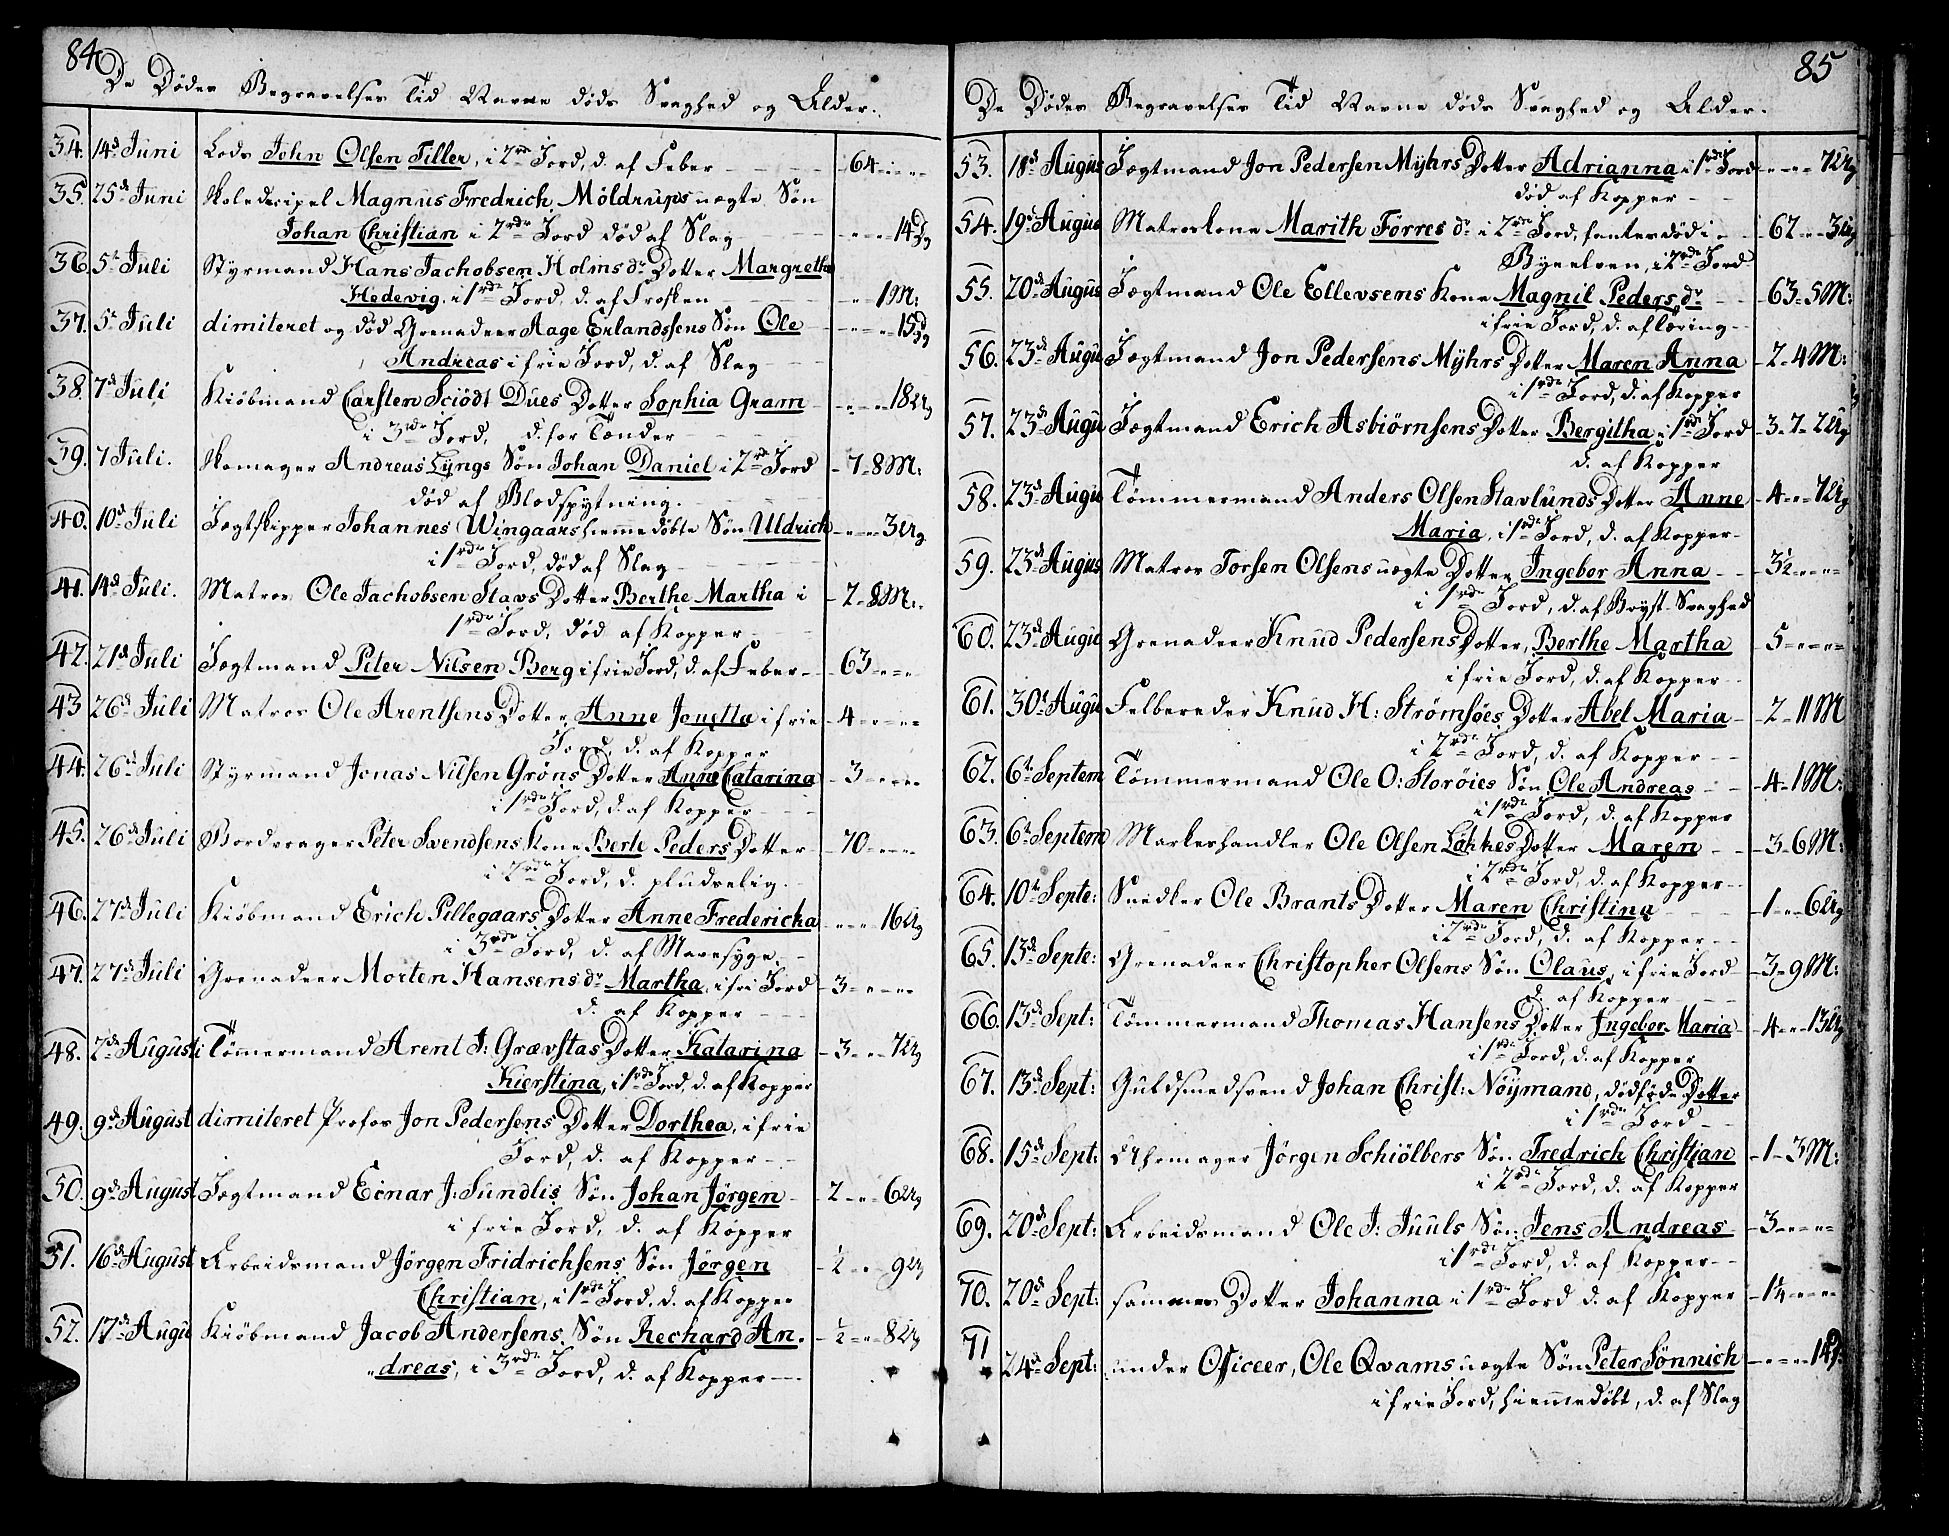 84
De Dødes Begravelses Tid Navne døds Svaghed og Alder.
34. 14d Juni Lods John Olsen Tiller, i 2den Jord, d. af Feber 64
35. 25d Juni Skoledisipel Magnus Fredrich Möldrups uægte Søn
Johan Christian i 2rde Jord død af Slag 14 Dg
36. 5t Juli Styrmand Hans Jachobsen Holms dr Dotter Margretha
Hedevig, i 1rde Jord, d. af Frosken 1 M:
37. 5t Juli dimiteret og død Grenadeer Aage Erlandssens Søn Ole 15 Dg
Andreas i frie Jord, d. af Slag
38. 7d Juli Kiøbmand Carsten Sciödt Dues Dotter Sophia Gram 18 Ug
i 3rde Jord, d. for Tænder
39. 7 Juli. Skomager Andreas Lÿngs Søn Johan Daniel i 2rde Jord 7 - 8 M:
død af Blodspytning.
40. 10d Juli Jægtskipper Johannes Wingaars hiemmedøbte Søn Uldrich 3 Ug
i 1rde Jord, død af Slag
41. 14d Juli. Matros Ole Jachobsen Stavs Dotter Berthe Martha i 2 - 8 M:
1rde Jord, død af Kopper
42. 21d Juli Jægtmand Peter Nilsen Berg i frie Jord, d. af Feber 63
43 26d Juli Matros Ole Arentsens Dotter Anne Jonetta i frie 4
Jord, d. af Kopper
44. 26d Juli Styrmand Jonas Nilsen Gröns Dotter Anne Catarina 3
i 1rde Jord, d. af Kopper
45. 26d Juli Bordvrager Peter Svendsens Kone Berte Peders Dotter 70
i 2rde Jord, d. pludselig.
46. 27d Juli Kiøbmand Erich Pillegaars Dotter Anne Fredericka 16 Ug
i 3rde Jord, d. af Mavesyge.
47. 27d Juli Grenadeer Morten Hansens dr Martha, i fri Jord 3
d. af Kopper
48. 2d Augusti Tømmermand Arent J: Grævstas Dotter Katarina 3 - 7 Ug
Kierstina, i 1rde Jord, d. af Kopper
49. 9d August dimiteret Profos Jon Pedersens Dotter Dorthea, i frie
Jord, d. af Kopper
50. 9d August Jægtmand Ecnar J: Sundlis Søn Johan Jørgen 2 - 6 Ug
i frie Jord, d. af Kopper
51. 16d August Arbeidsmand Jörgen Fridrichsens Søn Jørgen ½ - 9 Ug
Christian, i 1rde Jord, d. af Kopper
52. 17d Augu Kiøbmand Jacob Andersens Søn Rechard An- ½ - 8 Ug
dreas, i 3rde Jord, d. af Kopper
85
De Dødes Begravelses Tid Navne døds Svaghed og Alder.
53. 18d Augus Jægtmand Jon Pedersen Mÿhrs Dotter Adrianna i 1rde Jord 7 Ug
død af Kopper
54. 19d Augus Matroskone Marith Törres dr i 2rde Jord, fantes død i 62 - 3 Ug
Byeelven, i 2rde Jord
55. 20d Augus Jægtmand Ole Ellevsens Kone Magnil Peders dr 63 - 5 M:
i frie Jord, d. af læring
56. 23d Augu Jægtmand Jon Pedersens Mÿhrs Dotter Maren Anna 2 - 4 M:
i 1rde Jord, d. af Kopper
57. 23d Augu Jægtmand Erich Asbiörnsens Dotter Bergitha i 1rde Jord 3 - 7 - 2 Ug
d. af Kopper
58. 23d Augu Tømmermand Anders Olsen Stavlunds Dotter Anne 4 - 7 Ug
Maria, i 1rde Jord, d. af Kopper
59. 23d Augus Matros Torsen Olsens uægte Dotter Ingebor Anna 3½
i 1rde Jord, d. af Bryst-Svaghed
60. 23d Augu Grenadeer Knud Pedersens Dotter, Berthe Martha 5
i frie Jord, d. af Kopper
61. 30t Augu Felbereder Knud H: Strømsöes Dotter Abel Maria 2 - 11 M
i 2rde Jord, d. af Kopper
62. 6t Septem Tømmermand Ole O: Storöies Søn Ole Andreas 4 - 1 M:
i 1rde Jord, d. af Kopper
63. 6t Septem Markerhandler Ole Olsen Løkkes Dotter Maren 3 - 6 M:
i 2rde Jord, d. af Kopper
64. 10t Septe: Snedker Ole Brants Dotter Maren Christina 1 - 6 Ug
i 2rde Jord, d. af Kopper
65. 13d Septe: Grenadeer Christopher Olsens Søn Olaus, i frie Jord 3 - 9 M:
d. af Kopper
66. 13d Sept: Tømmermand Thomas Hansens Dotter Ingebor Maria 4 - 13 Ug
i 1rde Jord, d. af Kopper
67. 13d Sept: Guldsmedsvend Johan Christ: Nöymand, dødføde Dotter
i 1rde Jord
68. 15d Sept: Uhrmager Jörgen Schiölbers Søn Fredrich Christian 1 - 3 M:
i 2rde Jord, d. af Kopper
69. 20d Sept: Arbeidsmand Ole J: Juuls Søn Jens Andreas 3
i 1rde Jord, d. af Kopper
70. 20d Sept: sammes Dotter Johanna i 1rde Jord d. af Kopper 1¼
71 24d Sept: under Officeer, Ole Qvams uægte Søn Peter Sønnich 14 D.
i frie Jord, hiemmedøbt, d. af Slag